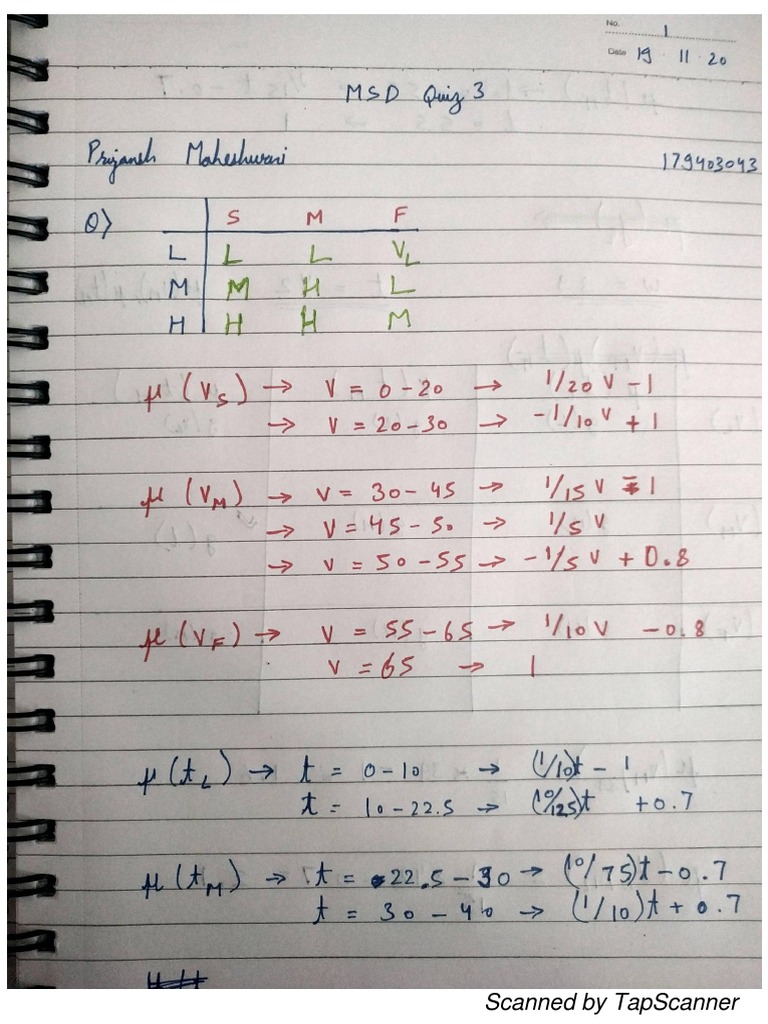 No. 1
Date 19 11 20
MSD Quiz 3
Priyansh Maheshwari 179403043
Q> S M F
L L L VL
M M H L
H H H M
μ (VS) → V = 0 - 20 → 1/20 V - 1
→ V = 20 - 30 → -1/10 V + 1
μ (VM) → V = 30 - 45 → 1/15 V - 1
→ V = 45 - 50 → 1/5 V
→ V = 50 - 55 → -1/5 V + 0.8
μ (VF) → V = 55 - 65 → 1/10 V - 0.8
V = 65 → 1
μ (tL) → t = 0 - 10 → (1/10)t - 1
t = 10 - 22.5 → (10/125)t + 0.7
μ (tM) → t = 22.5 - 30 → (10/75)t - 0.7
t = 30 - 40 → (1/10)t + 0.7
Scanned by TapScanner